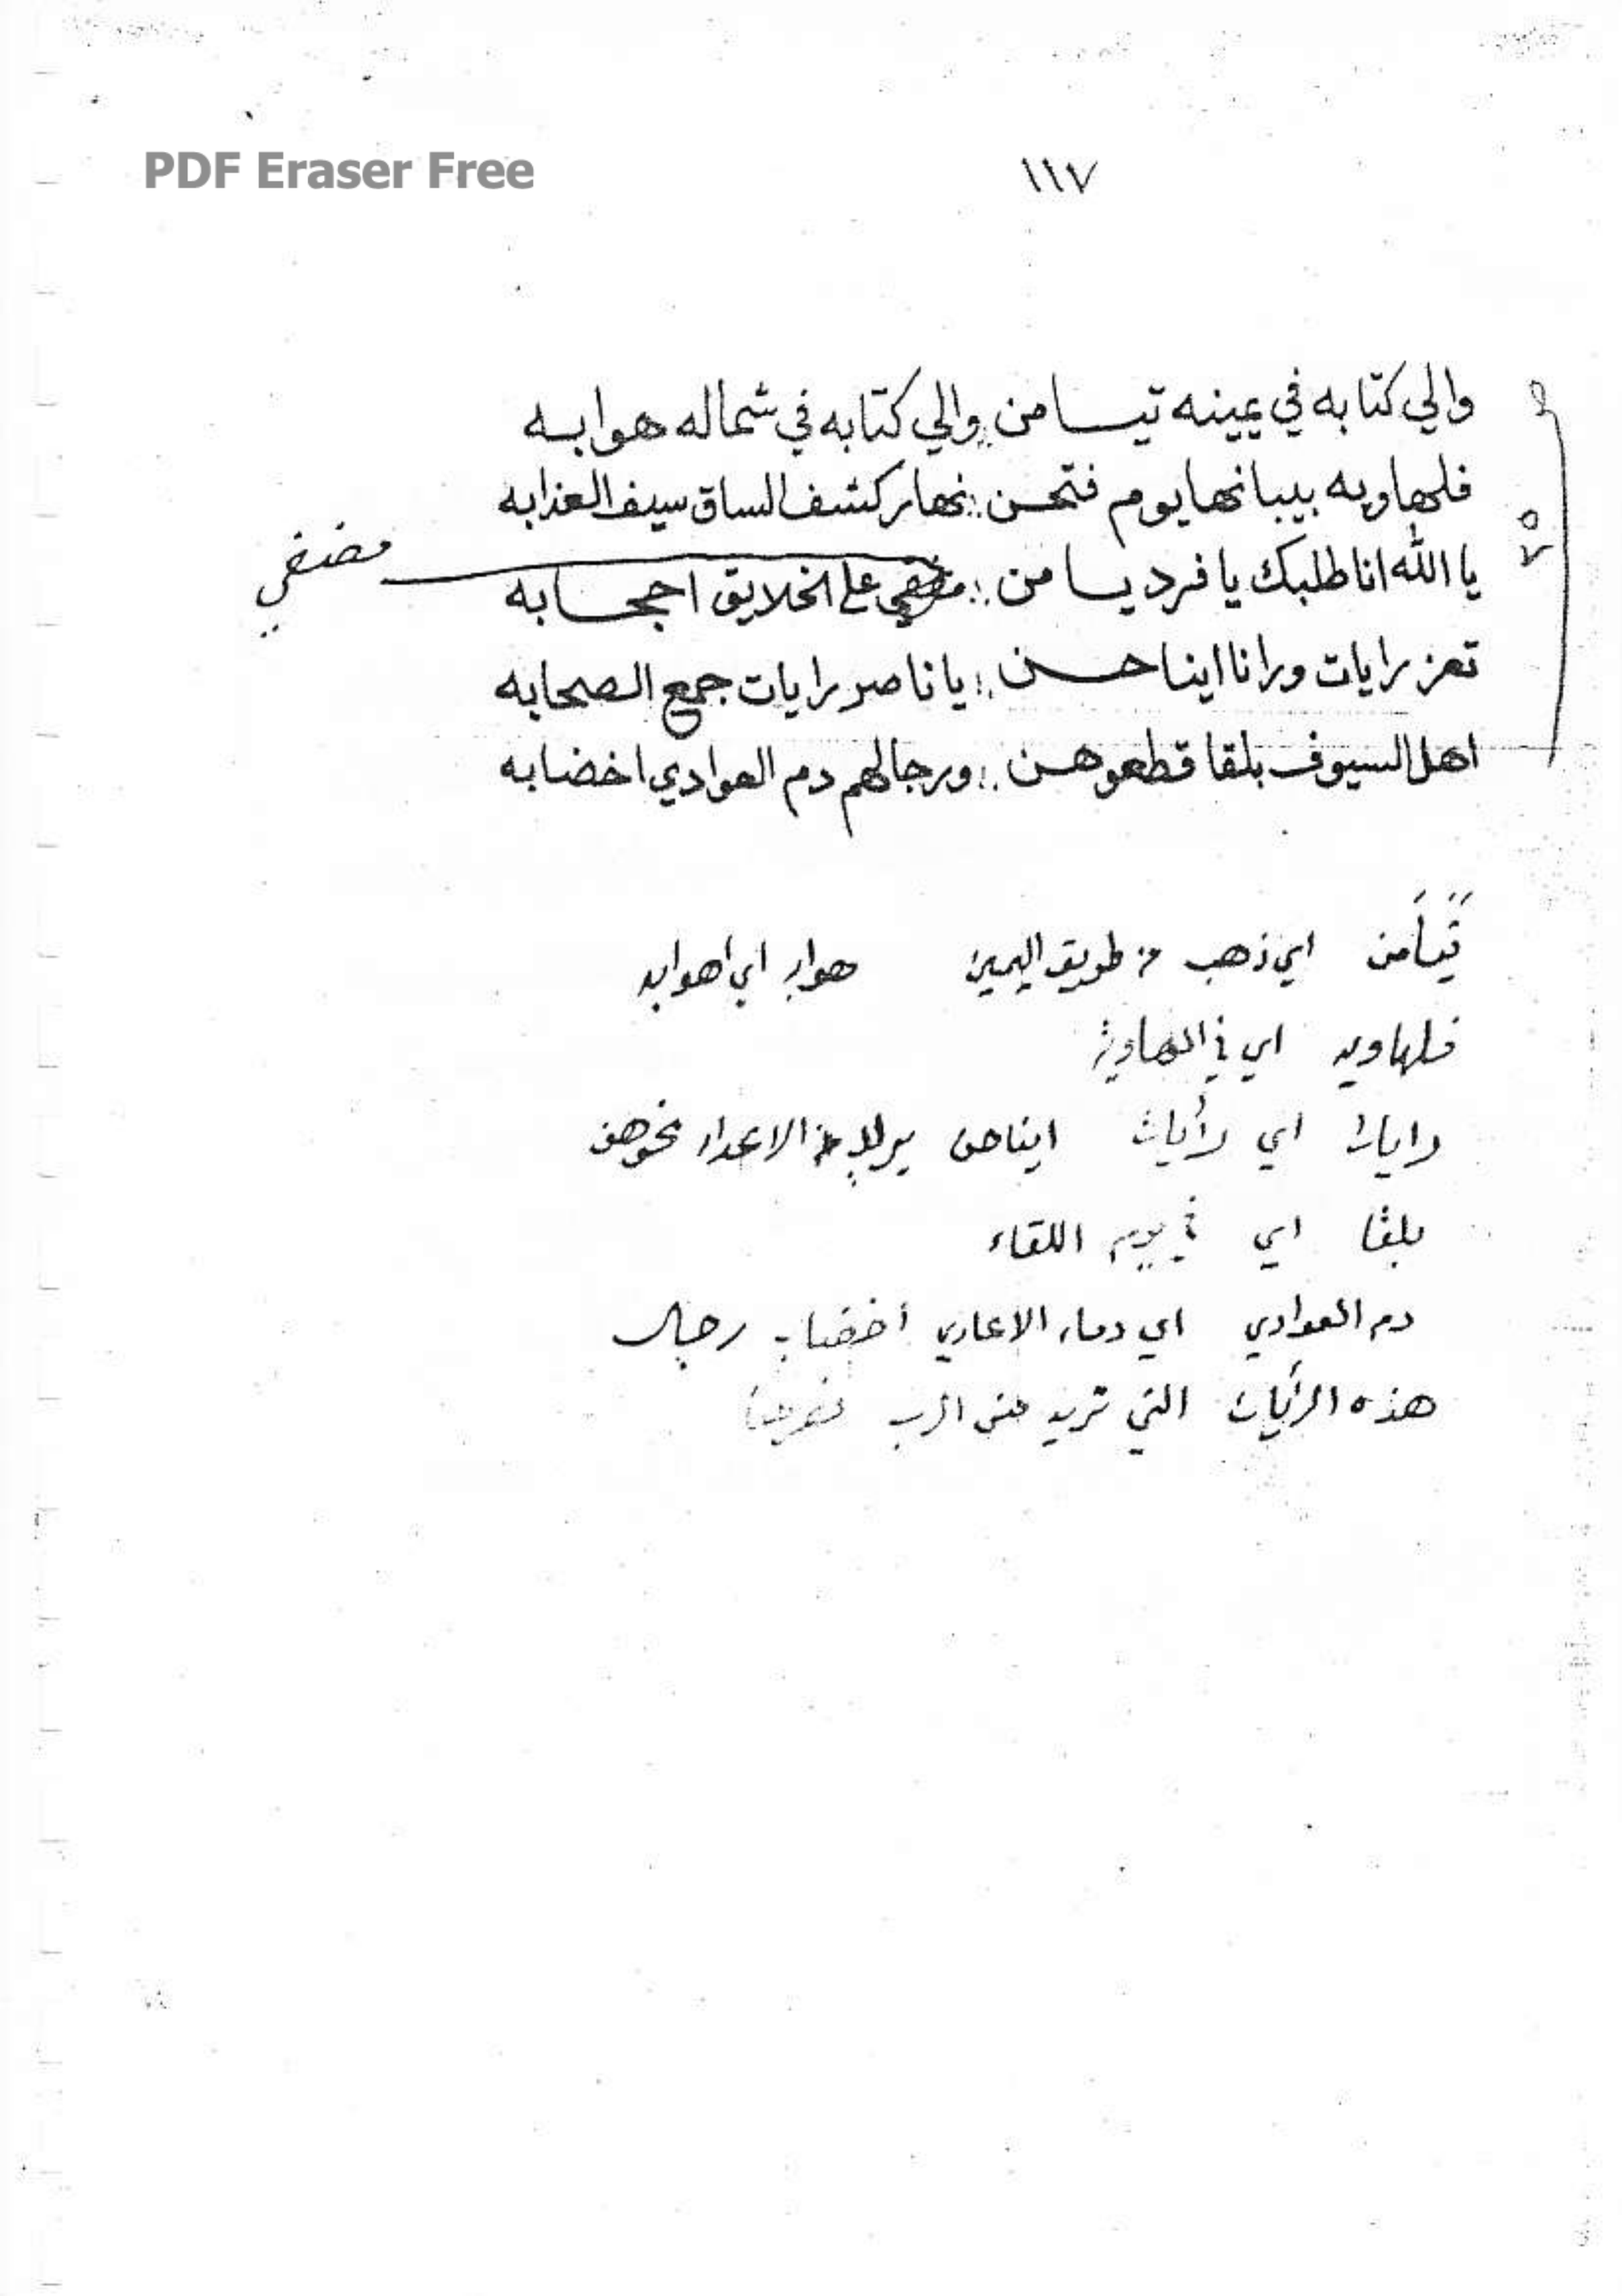 PDF Eraser Free
١١٧
والي كتابه في يمينه تيسامن :: والي كتابه في شماله هوابه
فلهاويه بيبانها يوم فتحن :: نهار كشف الساق سيف العذابه
يا الله انا طلبك يا فرد يسامن :: مضفي على الخلايق احجابه
مضفي
تعز رايات ورانا اينا حسن :: يا ناصر رايات جمع الصحابه
اهل السيوف بلقا قطعوهن :: ورجالهم دم العوادي اخضابه
تيأمن اي ذهب من طريق اليمين هوابه اي اهوابه
فلهاويه اي في الهاوية
رايات اي رأيات الاعداء نحوهن
بلقا اي في يوم اللقاء
دم العوادي اي دماء الاعادي أخضاب رجال
هذه الرأيات التي تريد من الرب